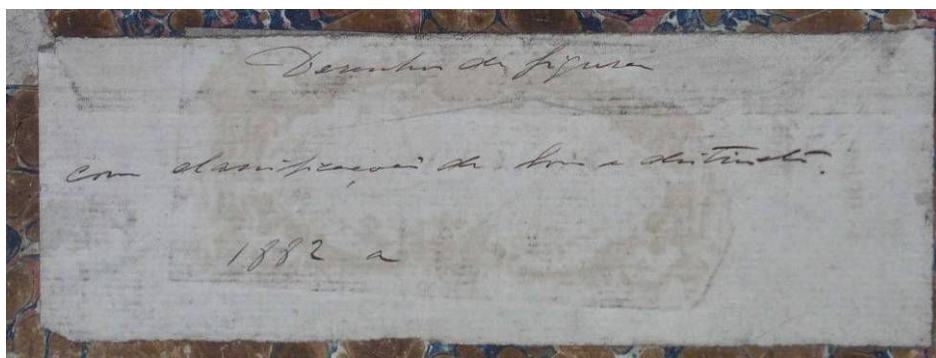 Desenhos de figura
com classificações de bom e distinto.
1882 a